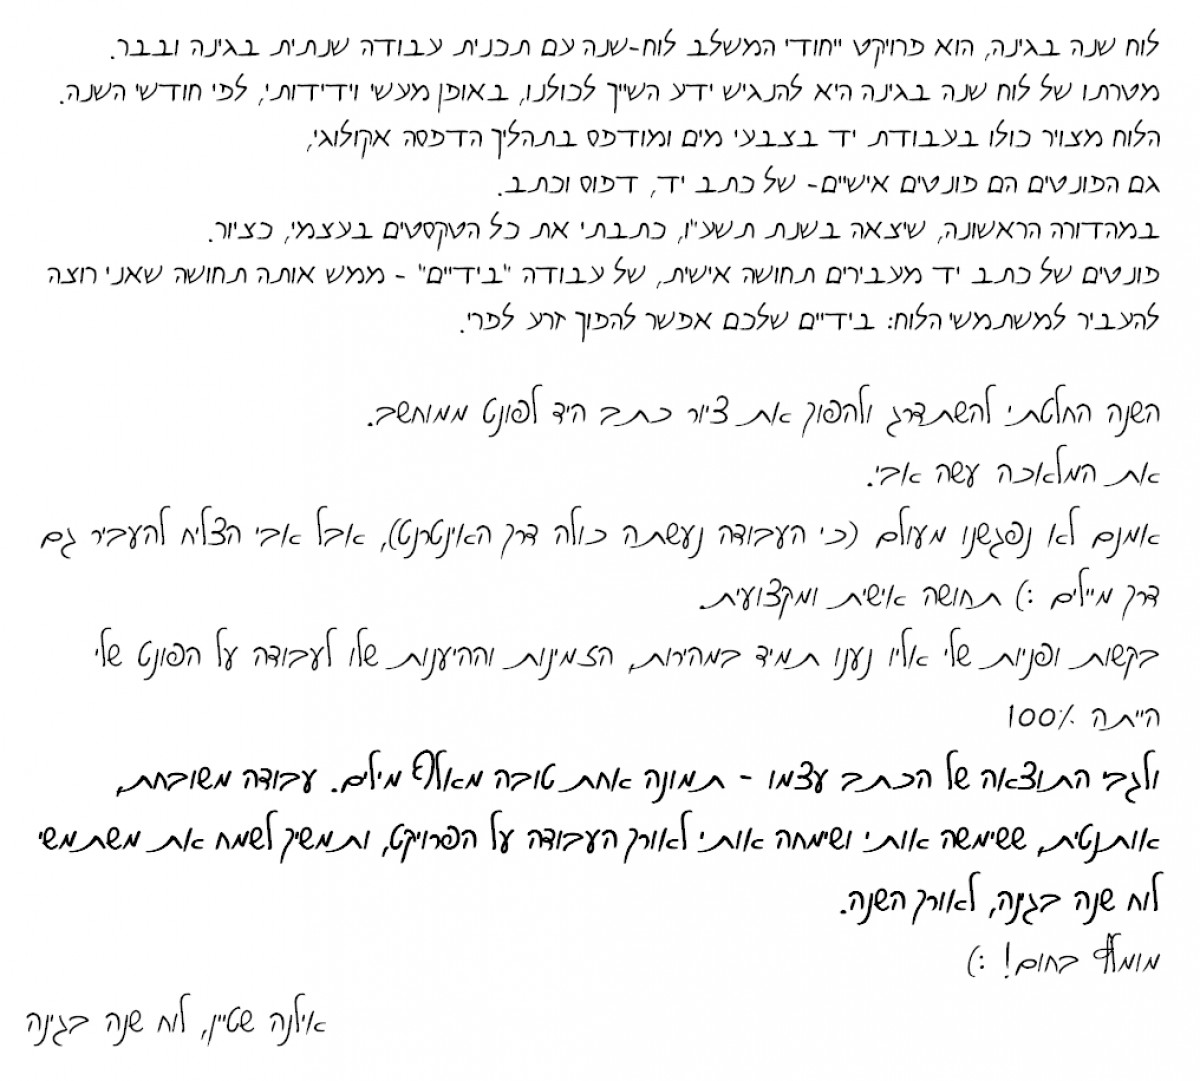 לוח שנה בגינה, הוא פרויקט ייחודי המשלב לוח-שנה עם תכנית עבודה שנתית בגינה ובבר.
מטרתו של לוח שנה בגינה היא להנגיש ידע השייך לכולנו, באופן מעשי וידידותי, לפי חודשי השנה.
הלוח מצויר כולו בעבודת יד בצבעי מים ומודפס בתהליך הדפסה אקולוגי,
גם הפונטים הם פונטים אישיים- של כתב יד, דפוס וכתב.
במהדורה הראשונה, שיצאה בשנת תשע"ו, כתבתי את כל הטקסטים בעצמי, כציור.
פונטים של כתב יד מעבירים תחושה אישית, של עבודה "בידיים" - ממש אותה תחושה שאני רוצה
להעביר למשתמשי הלוח: בידיים שלכם אפשר להפוך זרע לפרי.
השנה החלטתי להשתדרג ולהפוך את ציור כתב היד לפונט ממוחשב.
את המלאכה עשה אבי.
אמנם לא נפגשנו מעולם (כי העבודה נעשתה כולה דרך האינטרנט), אבל אבי הצליח להעביר גם
דרך מיילים :) תחושה אישית ומקצועית.
בקשות ופניות שלי אליו נענו תמיד במהירות, הזמינות וההיענות שלו לעבודה על הפונט שלי
הייתה 100%
ולגבי התוצאה של הכתב עצמו - תמונה אחת טובה מאלף מילים. עבודה משובחת,
אותנטית, ששימשה אותי ושימחה אותי לאורך העבודה על הפרויקט, ותמשיך לשמח את משתמשי
לוח שנה בגינה, לאורך השנה.
מומלץ בחום! :)
אילנה שטיין, לוח שנה בגינה